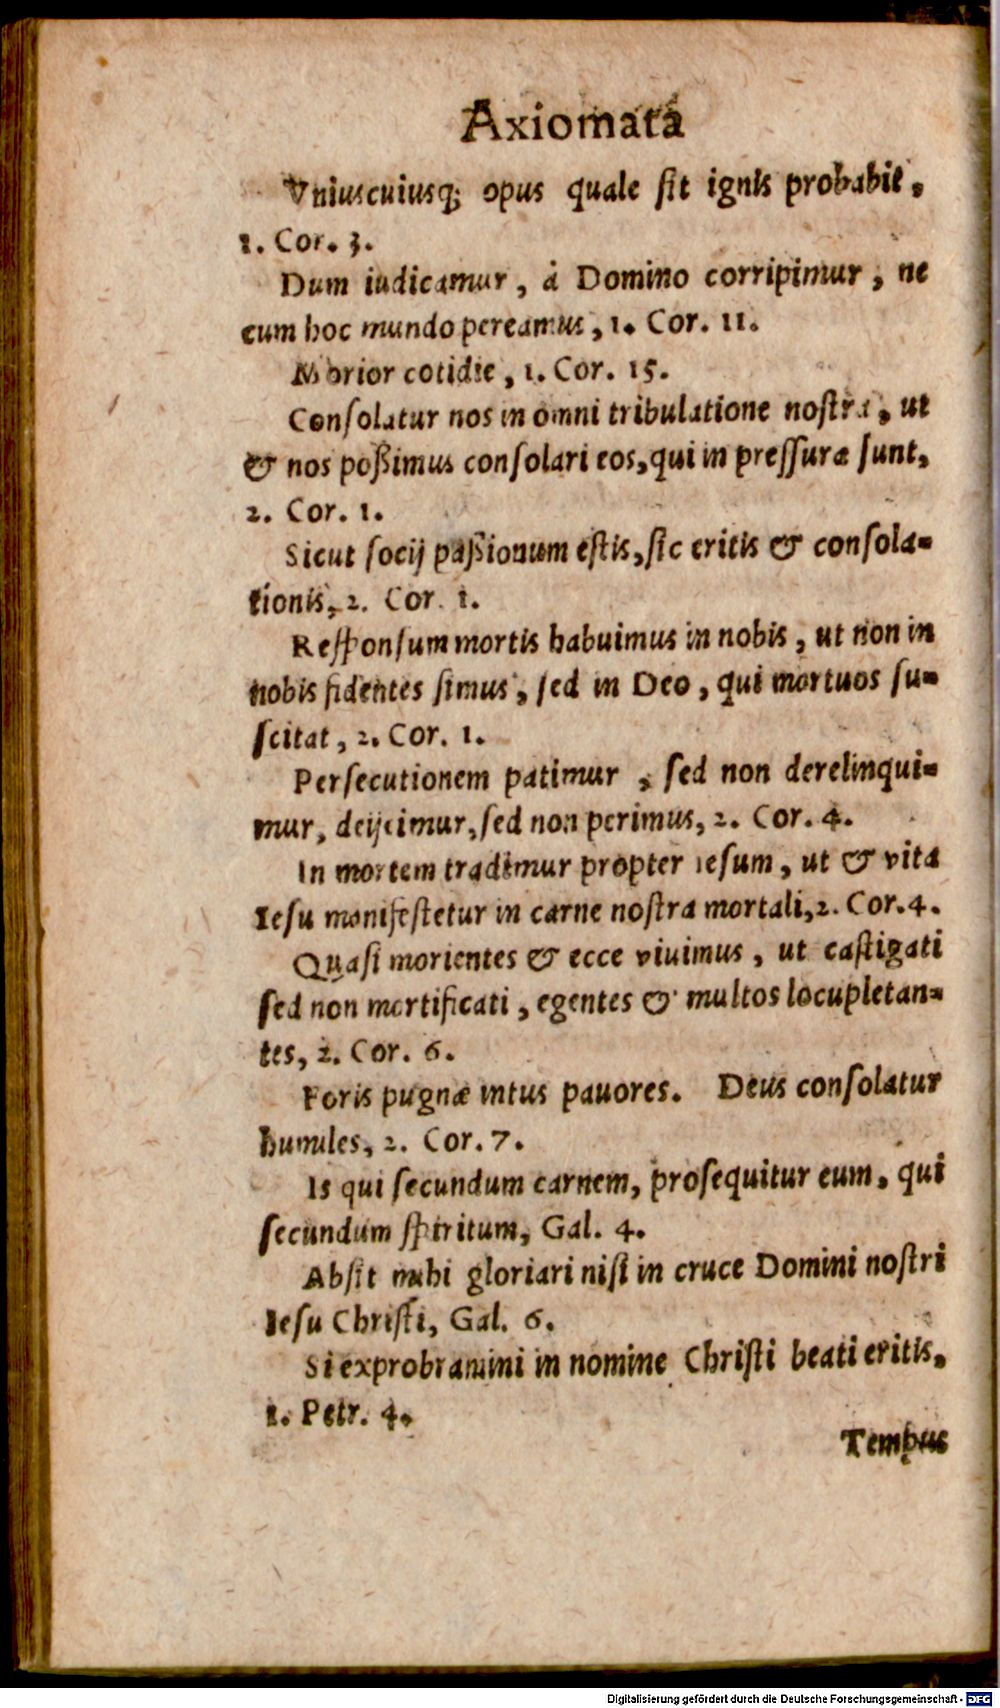 Axiomata
Vniuscuiusq; opus quale ſit ignis probabit,
1. Cor. 3.
Dum iudicamur, á Domino corripimur, ne
cum hoc mundo pereamus, 1. Cor. 11.
Morior cotidie, 1. Cor. 15.
Conſolatur nos in omni tribulatione noſtra, ut
& nos poßimus conſolari eos, qui in preſſura ſunt,
2. Cor. 1.
Sicut ſocij paßionum eſtis, ſic eritis & conſola-
tionis, 2. Cor. 1.
Reſponſum mortis habuimus in nobis, ut non in
nobis fidentes ſimus, ſed in Deo, qui mortuos ſu-
ſcitat, 2. Cor. 1.
Perſecutionem patimur, ſed non derelinqui-
mur, deijcimur, ſed non perimus, 2. Cor. 4.
In mortem tradimur propter Ieſum, ut & vita
Ieſu manifeſtetur in carne noſtra mortali, 2. Cor. 4.
Quaſi morientes & ecce viuimus, ut caſtigati
ſed non mortificati, egentes & multos locupletan-
tes, 2. Cor. 6.
Foris pugnæ intus pauores. Deus conſolatur
humiles, 2. Cor. 7.
Is qui ſecundum carnem, proſequitur eum, qui
ſecundum ſpiritum, Gal. 4.
Abſit mihi gloriari niſi in cruce Domini noſtri
Ieſu Chriſti, Gal. 6.
Si exprobramini in nomine Chriſti beati eritis,
1. Petr. 4.
Tempus
Digitalisierung gefördert durch die Deutsche Forschungsgemeinschaft - DFG